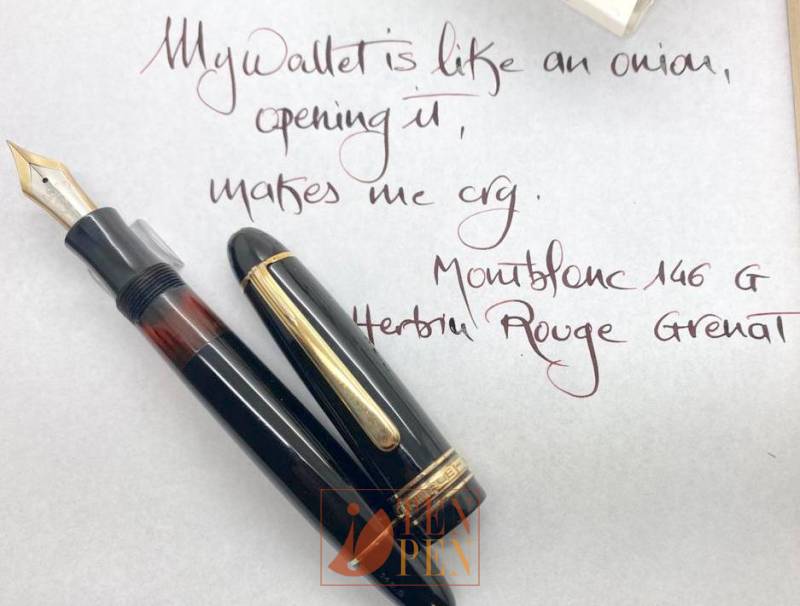 My wallet is like an onion,
opening it,
makes me cry.
Montblanc 146 G
Herbin Rouge Grenat
YEN
PEN